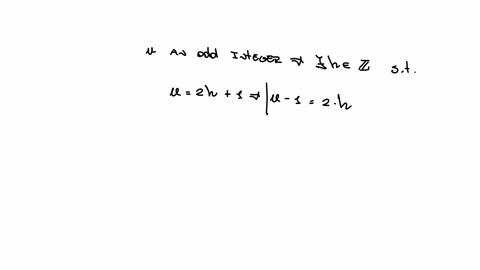 n AN odd INTEGER ⇒ ∃ h ∈ ℤ s.t.
n = 2h + 1 ⇒ | n - 1 = 2·h